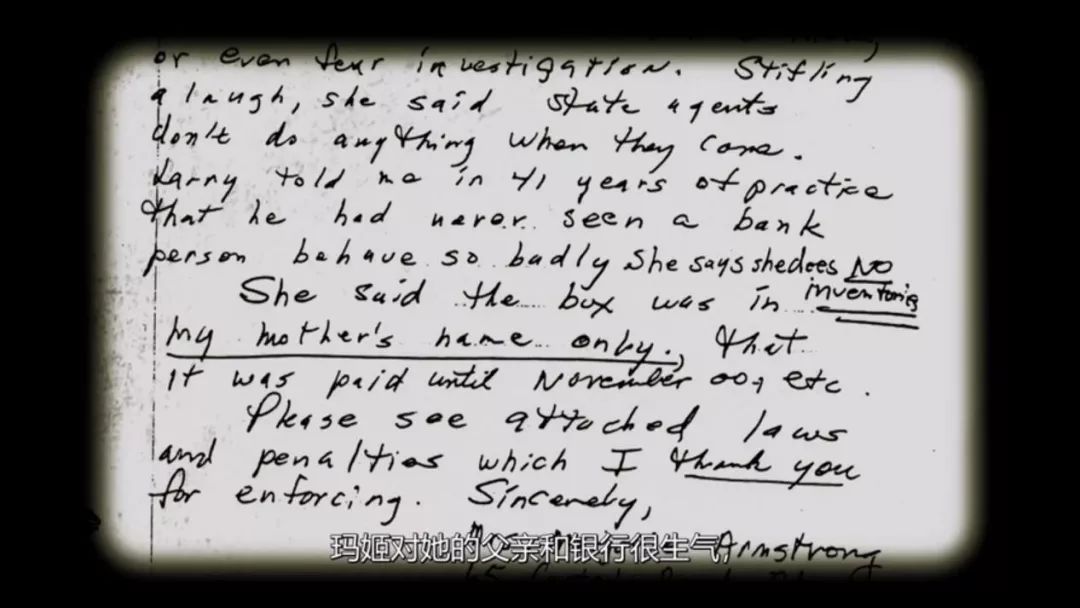 or even fear investigation. Stifling
a laugh, she said state agents
don't do anything when they come.
Larry told me in 41 years of practice
that he had never seen a bank
person behave so badly She says she does NO
inventories
She said the box was in
my mother's name only., that
it was paid until November 00, etc.
Please see attached laws
and penalties which I thank you
for enforcing. Sincerely,
Armstrong
玛姬对她的父亲和银行很生气,